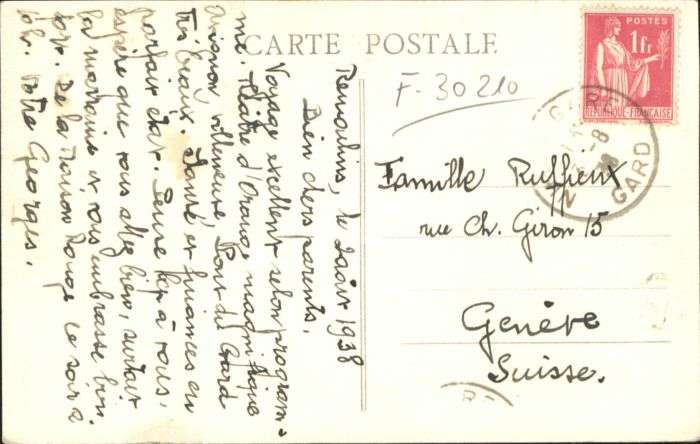 CARTE POSTALE
F-30210
POSTES
1fr
RÉPUBLIQUE-FRANÇAISE
GARE
-8
38
GARD
Remoulins, le 2 août 1938
Bien chers parents,
Voyage excellent selon program-
me. Théâtre d'Orange magnifique
Avignon, Villeneuve, Pont du Gard
très beaux. Santé et finances en
parfait état. Pense bcp à vous.
Espère que vous allez bien, surtout
la marraine et vous embrasse bien
fort. De la Maison Rouge ce soir à
Votre Georges.
Famille Ruffieux
rue Ch. Giron 15
Genève
Suisse.